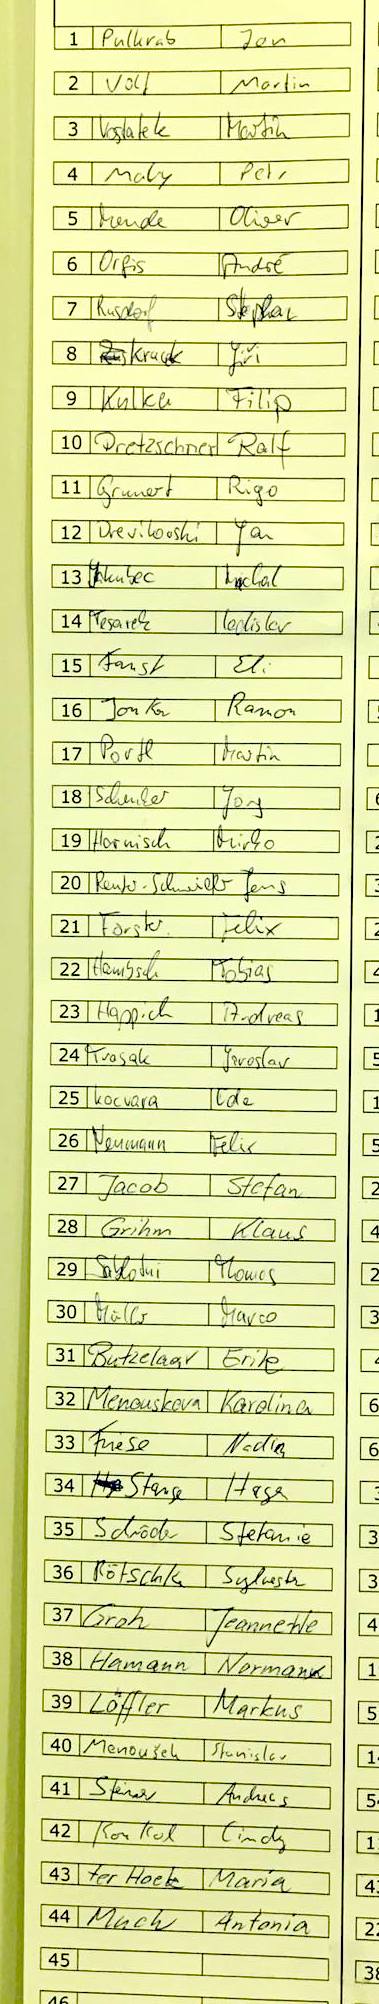 1 Pulkrab Jan
2 Voll Martin
3 Martin
4 Maly Petr
5 Mende Oliver
6 Orgis André
7 Rusdorf Stephan
8 Jiří
9 Kulka Filip
10 Pretzschner Ralf
11 Grunert Rigo
12 Drevikovski Jan
13 Jakubec Michal
14 Tesarek Ladislav
15 Faust Eli
16 Jonka Ramon
17 Portl Martin
18 Schenker Jörg
19 Harnisch Mirko
20 Jens
21 Förster Felix
22 Hambsch Tobias
23 Happich Andreas
24 Trosak Jaroslav
25 kocvara
26 Neumann Felix
27 Jacob Stefan
28 Grihm Klaus
29 Thomas
30 Müller Marco
31 Butzelaar Erik
32 Menouskova Karolina
33 Friese Nadia
34 Stange
35 Schröder Stefanie
36 Rötschke Sylvester
37 Groh Jeannette
38 Hamann Norman
39 Löffler Markus
40 Menoušek Stanislav
41 Andreas
42 Konkol Cindy
43 ter Hoek Maria
44 Much Antonia
45
46